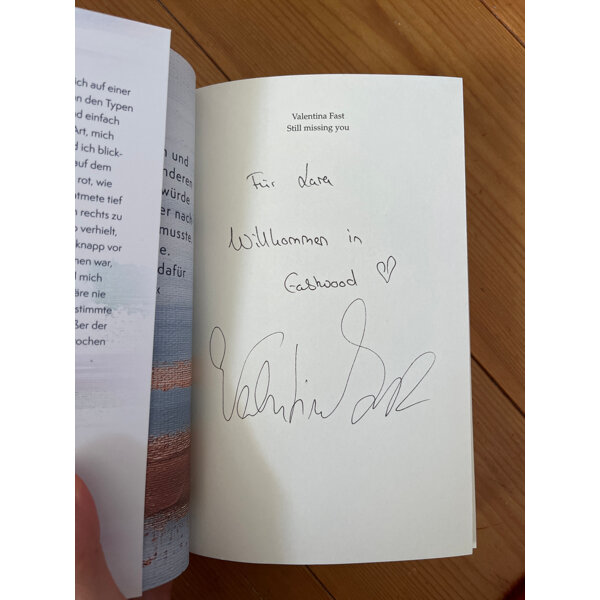 ich auf einer
n den Typen
d einfach
Art, mich
d ich blick-
auf dem
rot, wie
atmete tief
n rechts zu
o verhielt,
knapp vor
men war,
d mich
äre nie
estimmte
ßer der
rochen
n und
nderen
würde
er nach
musste,
e.
dafür
Valentina Fast
Still missing you
Für Lara
Willkommen in
Eastwood ♡
Valentina Fast